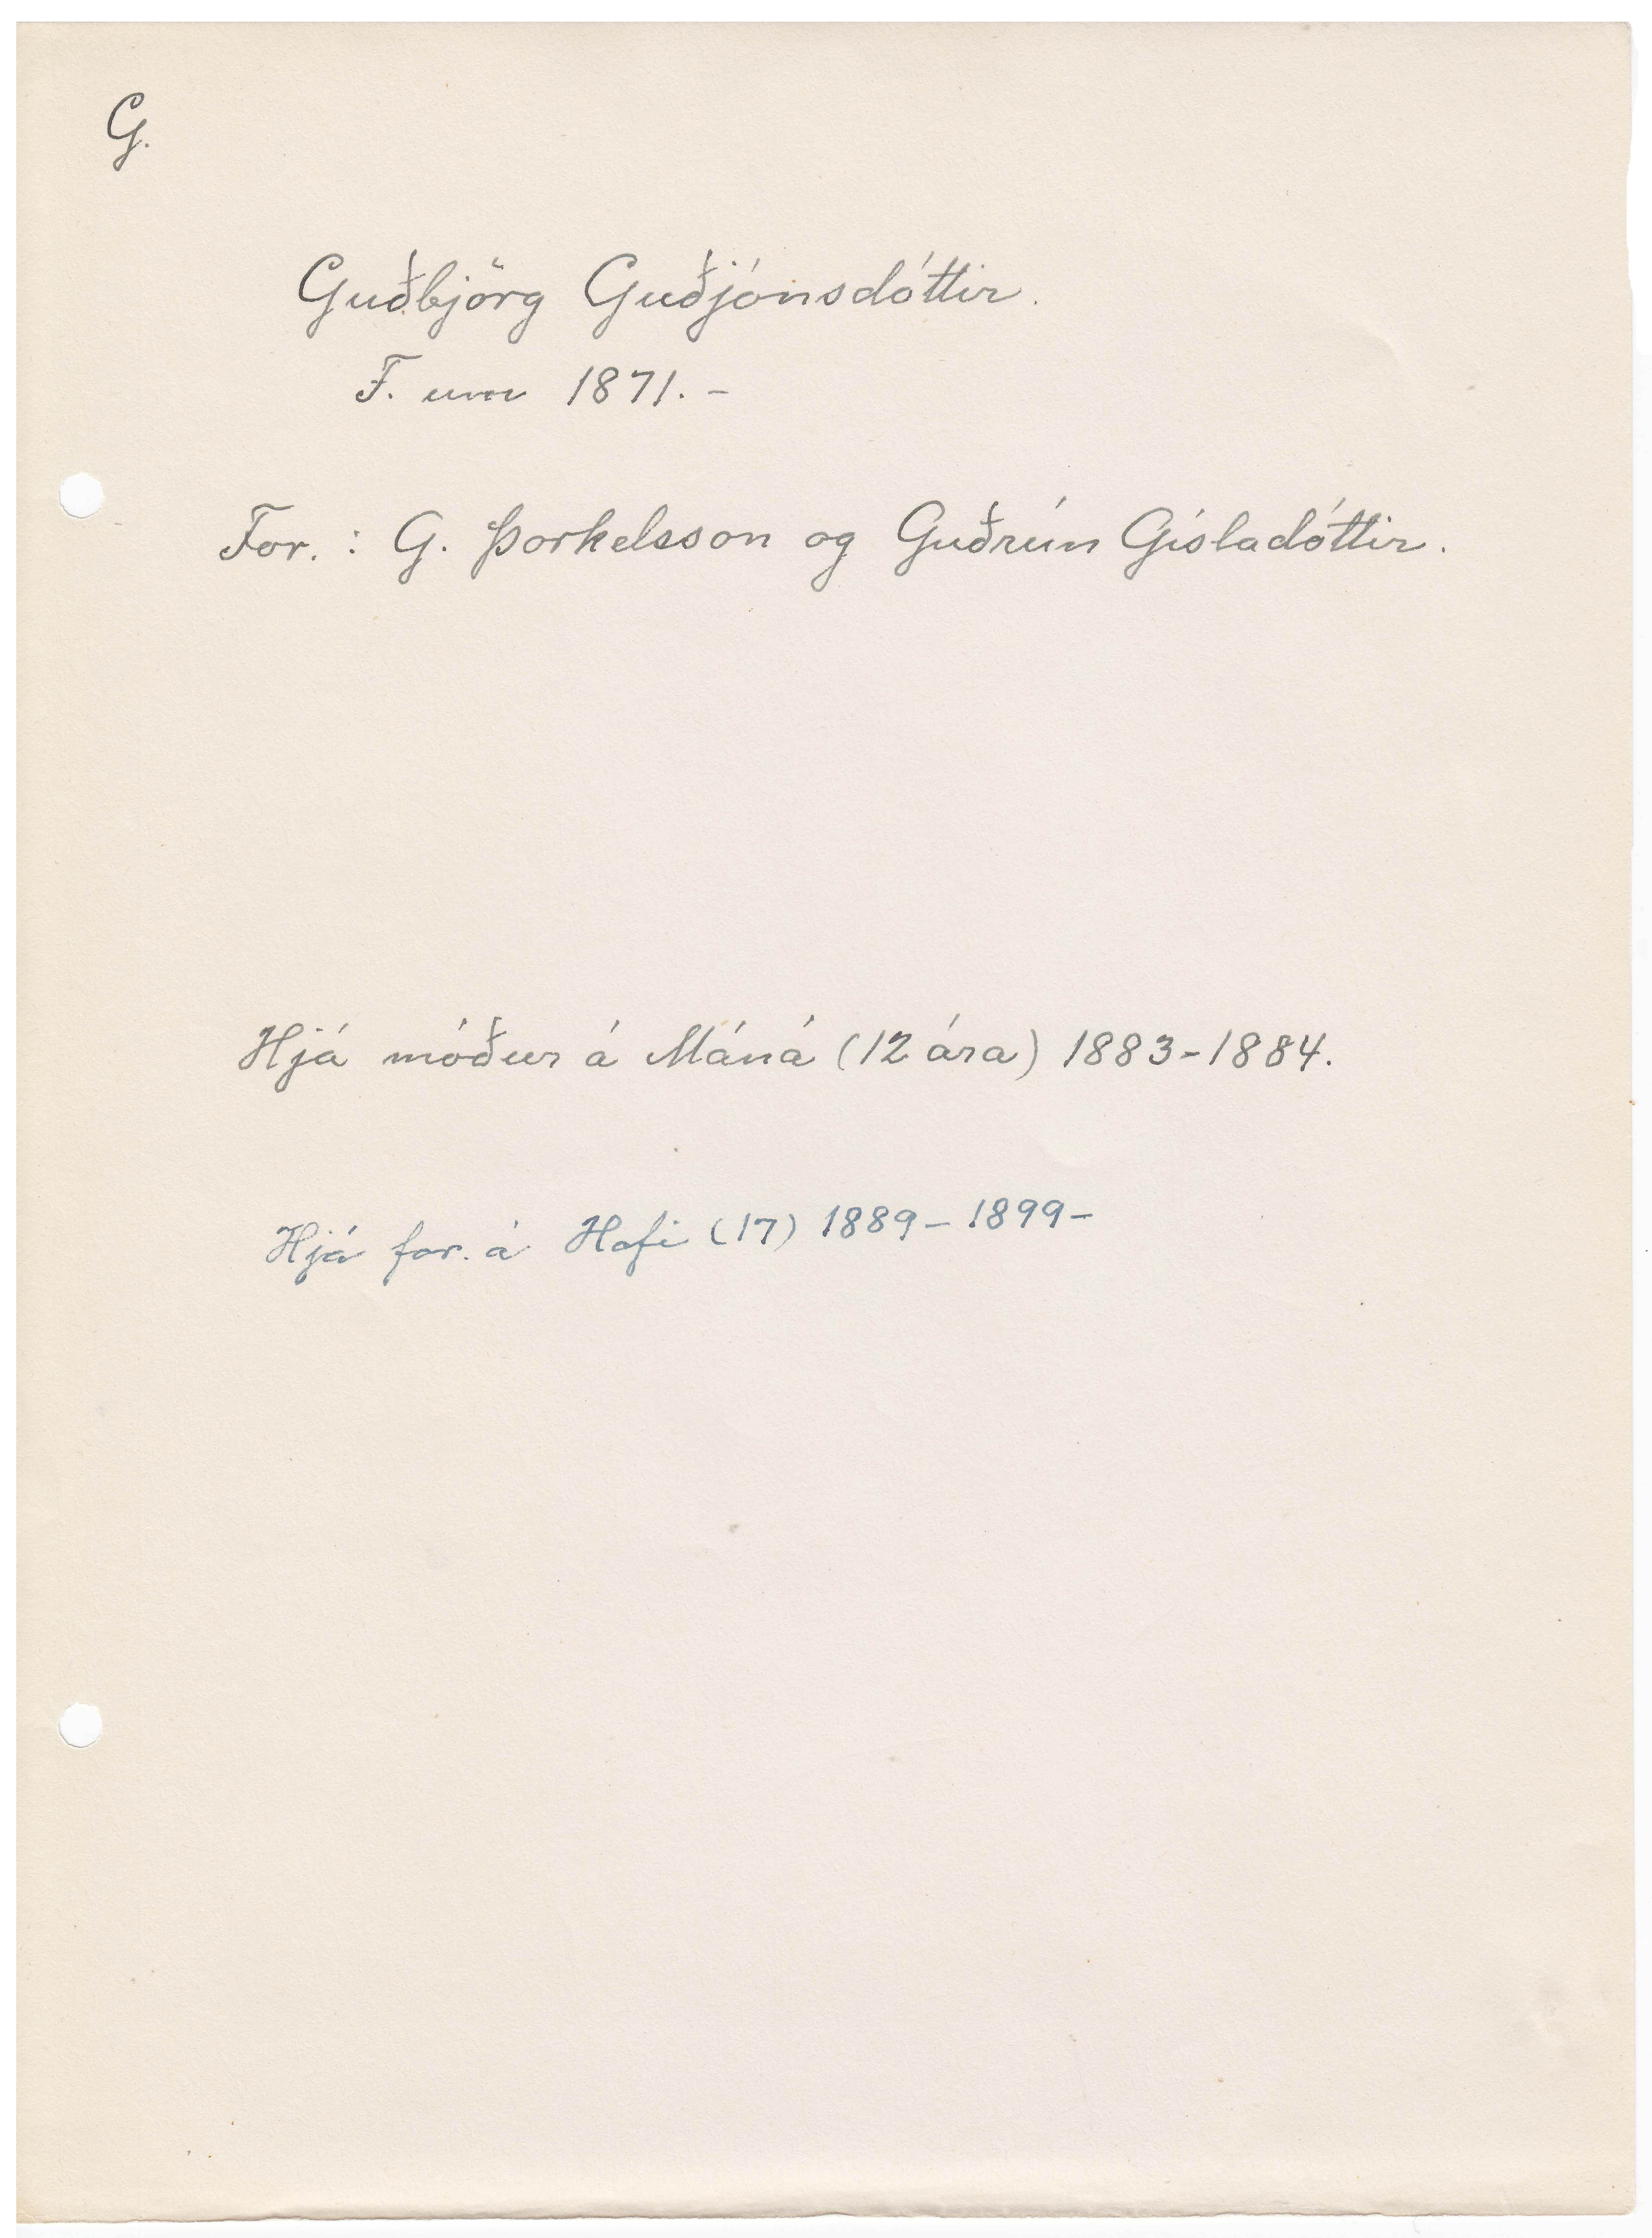 G.
Guðbjörg Guðjónsdóttir.
F. um 1871. -
For. : G. Þorkelsson og Guðrún Gísladóttir.
Hjá móður á Máná (12 ára) 1883-1884.
Hjá for. á Hofi (17) 1889-1899-